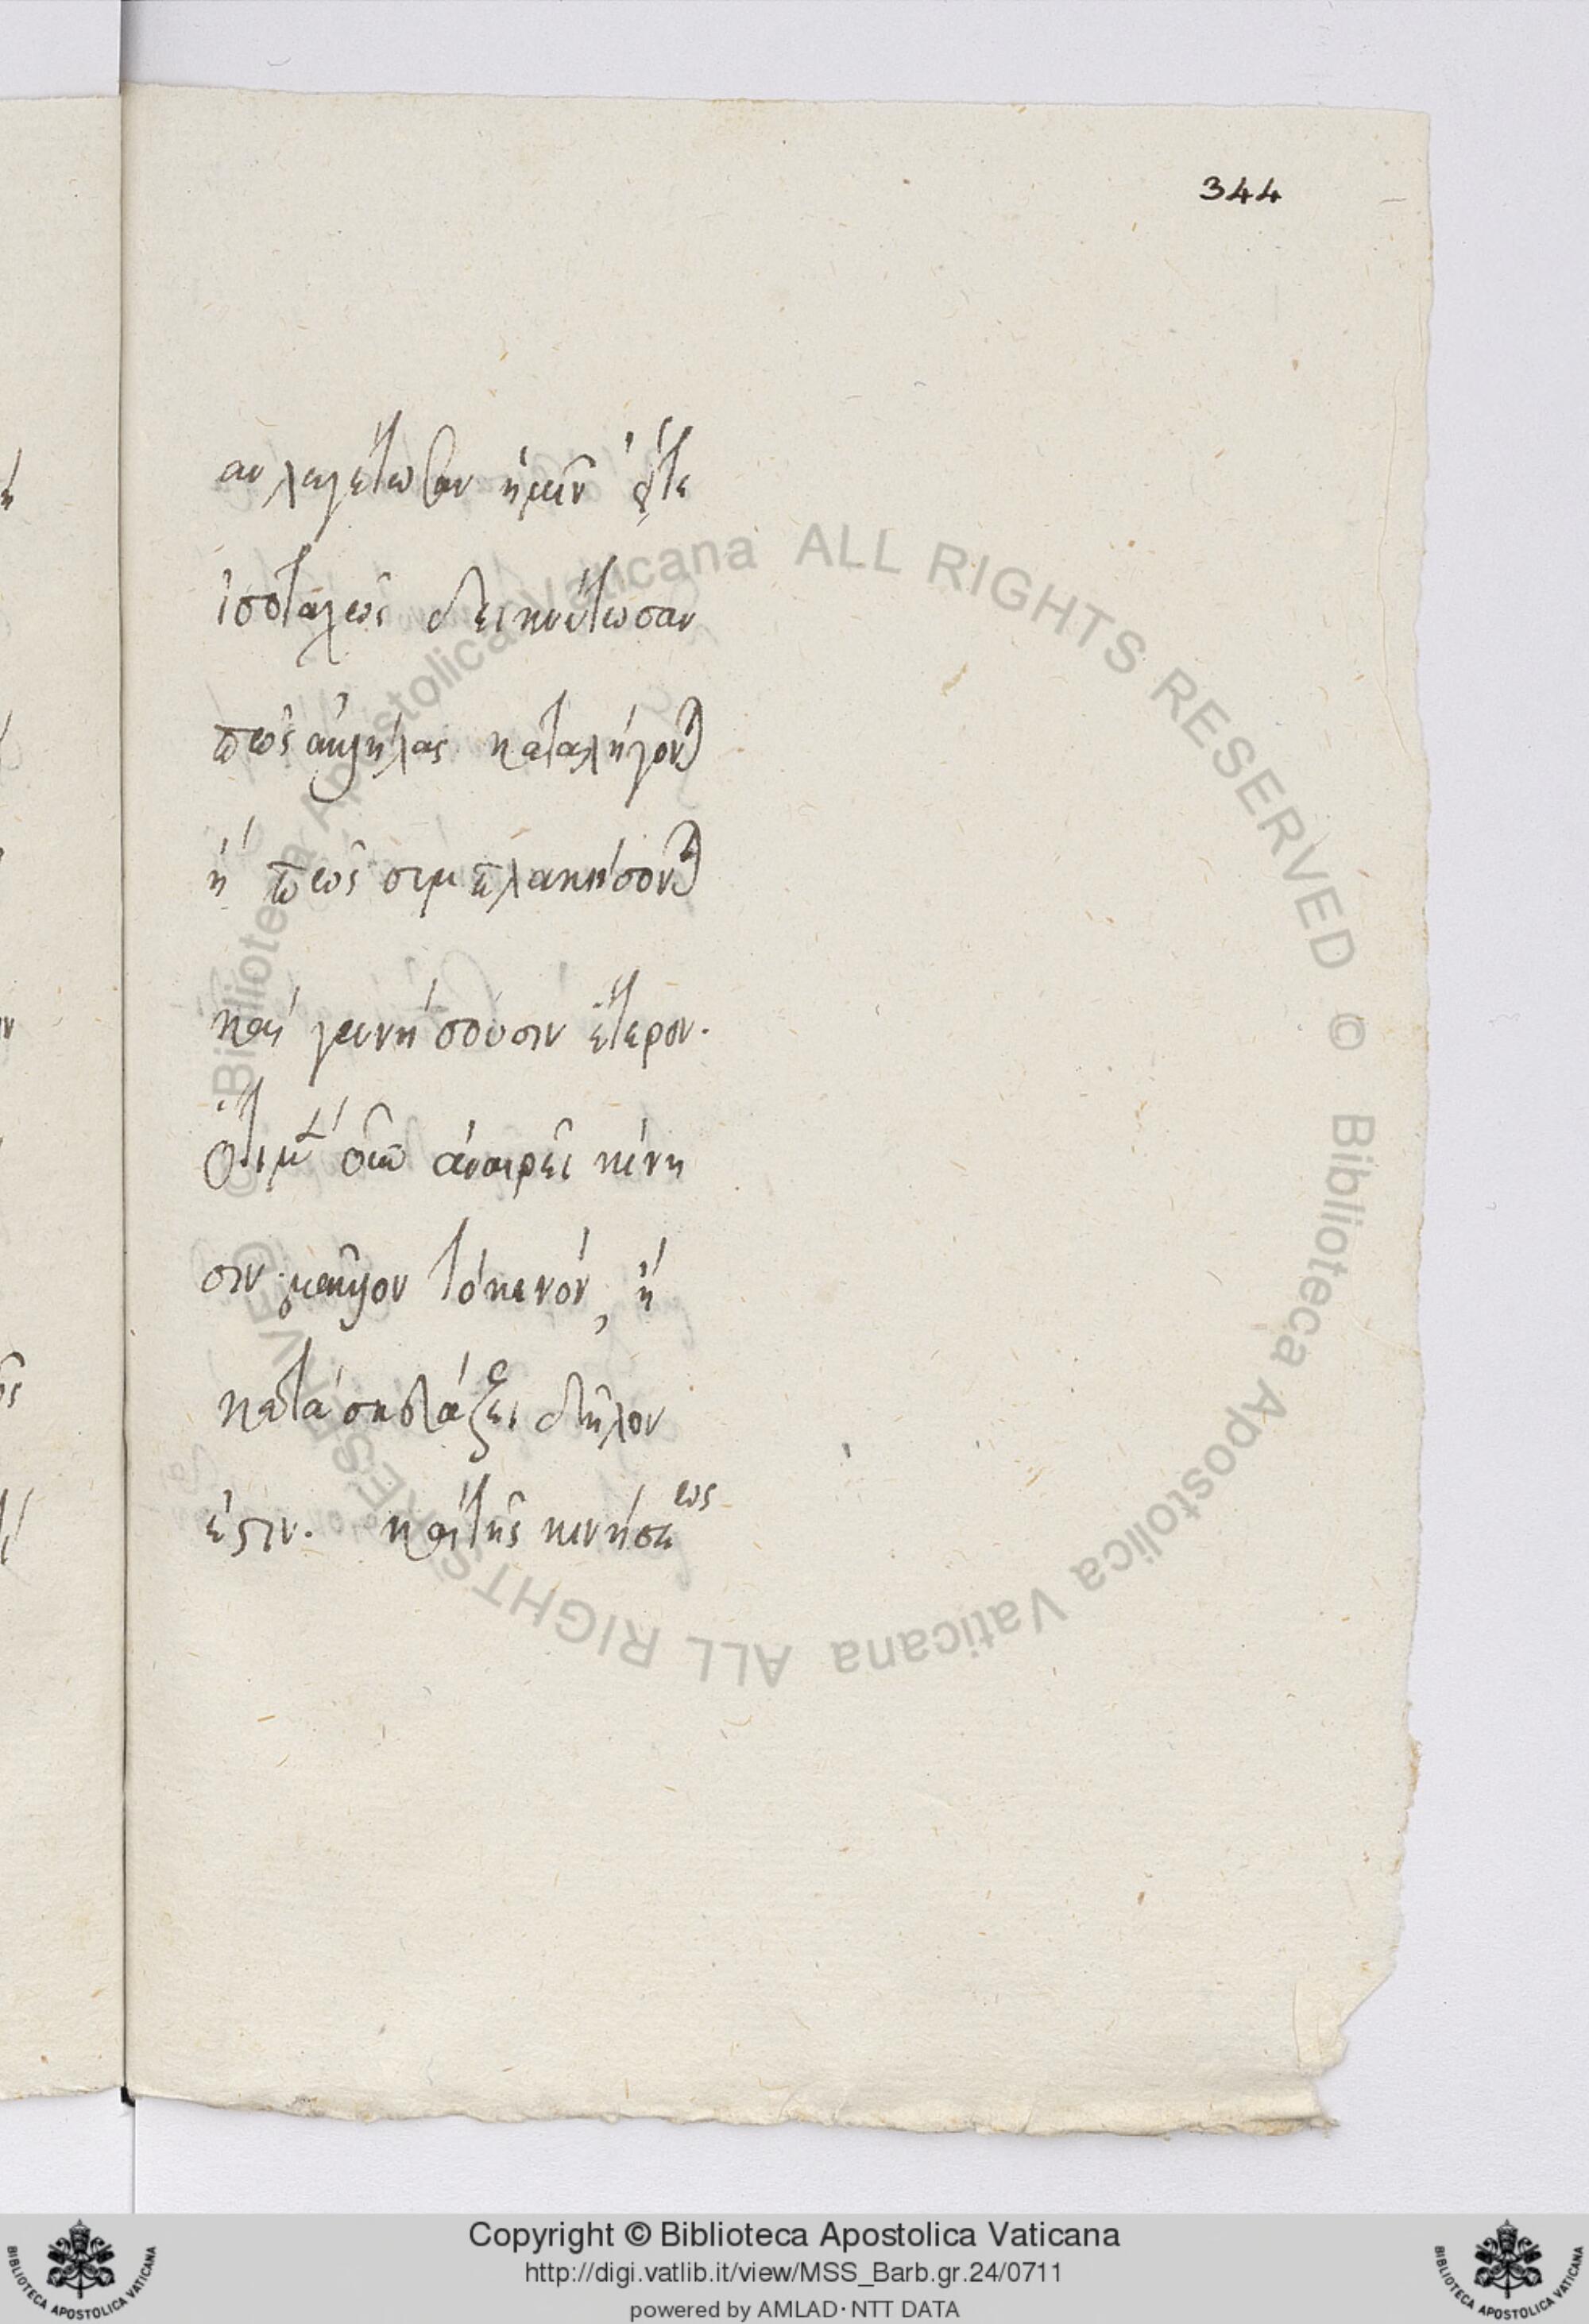 344
αν λεγέτωσαν ἡμῖν ὅτε
ἰσοταχῶς δεικνύτωσαν
πῶς ἀλλήλας καταλήψον
ἢ πῶς συμπλακήσον
καὶ γεννήσουσιν ἕτερον.
Ὅτι μ οὖν ἀναιρεῖ κίνη
σιν μᾶλλον τὸ κενόν, ἢ
κατασκευάζει δῆλον
ἐστιν. καὶ τῆς κινήσεως
© Biblioteca Apostolica Vaticana ALL RIGHTS RESERVED © Biblioteca Apostolica Vaticana ALL RIGHTS RESERVED
Copyright © Biblioteca Apostolica Vaticana
http://digi.vatlib.it/view/MSS_Barb.gr.24/0711
powered by AMLAD·NTT DATA
BIBLIOTECA APOSTOLICA VATICANA
BIBLIOTECA APOSTOLICA VATICANA